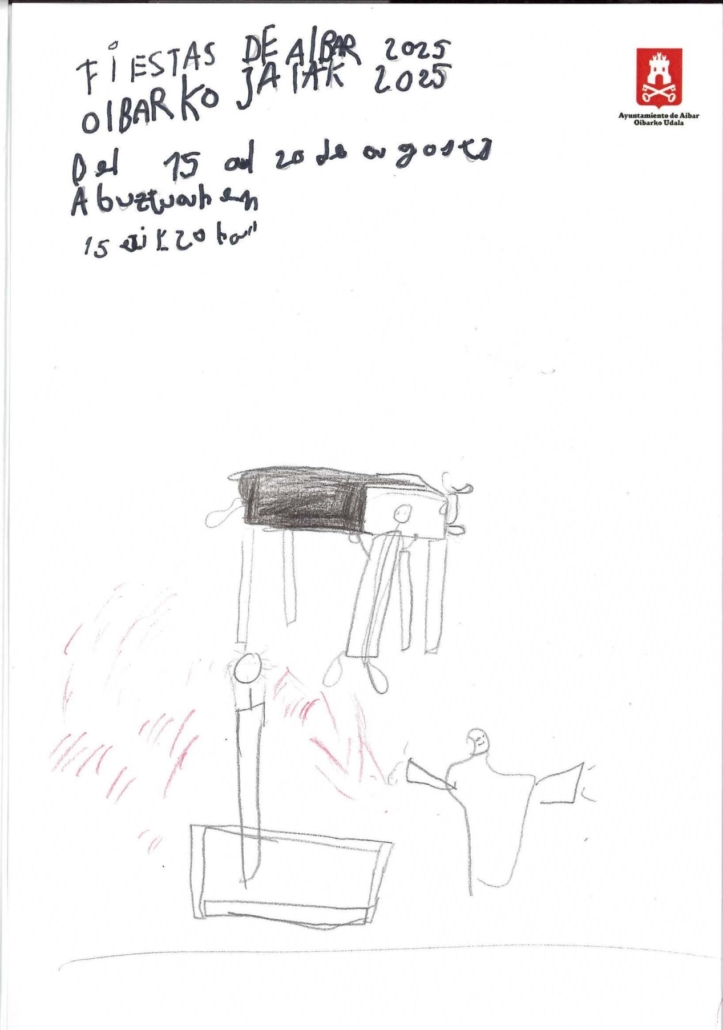 FIESTAS DE AIBAR 2025
OIBARKO JAIAK 2025
Del 15 al 20 de agosto
Abuztuaren
15 tik 20 ra
Ayuntamiento de Aibar
Oibarko Udala